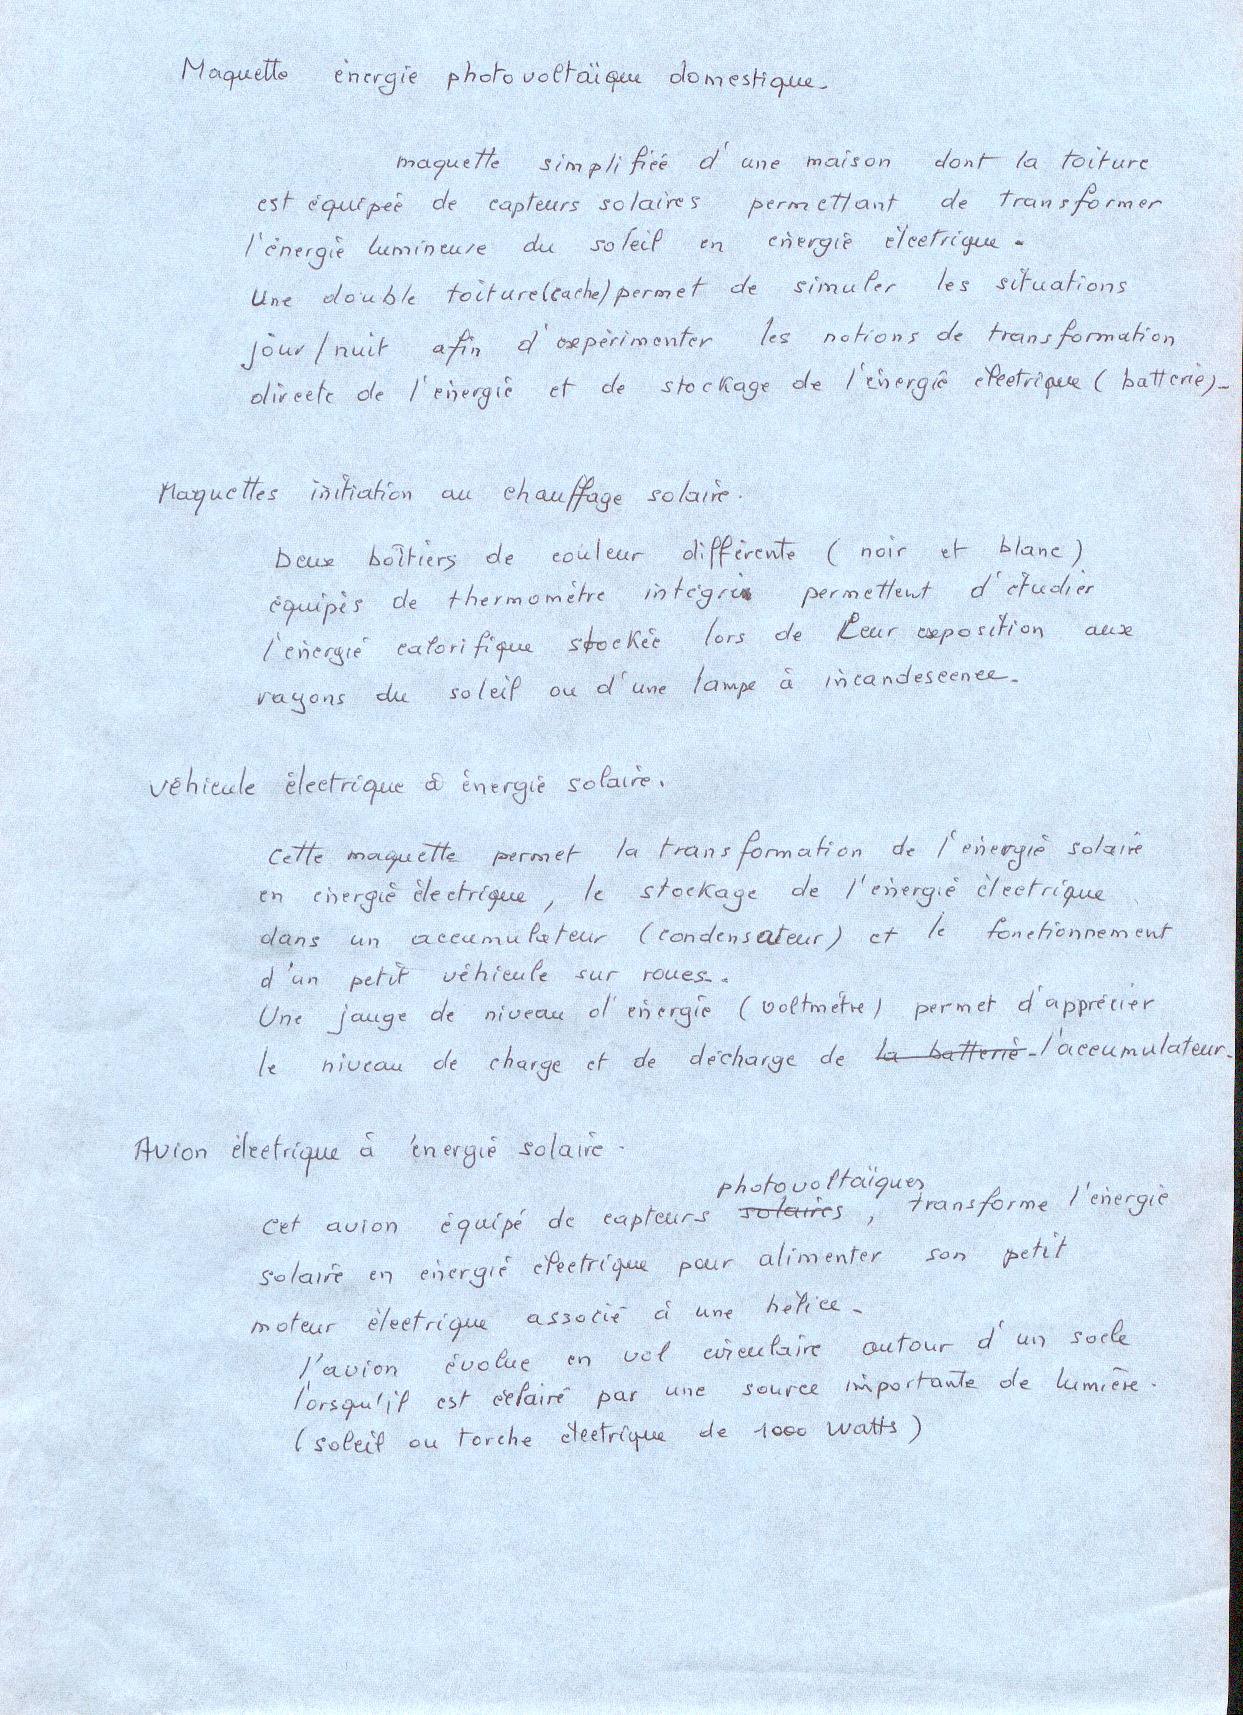 Maquette énergie photovoltaïque domestique.
maquette simplifiée d'une maison dont la toiture
est équipée de capteurs solaires permettant de transformer
l'énergie lumineuse du soleil en énergie électrique.
Une double toiture (cache) permet de simuler les situations
jour/nuit afin d'expérimenter les notions de transformation
directe de l'énergie et de stockage de l'énergie électrique (batterie).
Maquettes initiation au chauffage solaire.
Deux boîtiers de couleur différente (noir et blanc)
équipés de thermomètre intégré permettent d'étudier
l'énergie calorifique stockée lors de leur exposition aux
rayons du soleil ou d'une lampe à incandescence.
véhicule électrique à énergie solaire.
Cette maquette permet la transformation de l'énergie solaire
en énergie électrique, le stockage de l'énergie électrique
dans un accumulateur (condensateur) et le fonctionnement
d'un petit véhicule sur roues.
Une jauge de niveau d'énergie (voltmètre) permet d'apprécier
le niveau de charge et de décharge de la batterie l'accumulateur.
Avion électrique à énergie solaire.
photovoltaïques
Cet avion équipé de capteurs solaires, transforme l'énergie
solaire en énergie électrique pour alimenter son petit
moteur électrique associé à une hélice.
l'avion évolue en vol circulaire autour d'un socle
lorsqu'il est éclairé par une source importante de lumière.
(soleil ou torche électrique de 1000 watts)